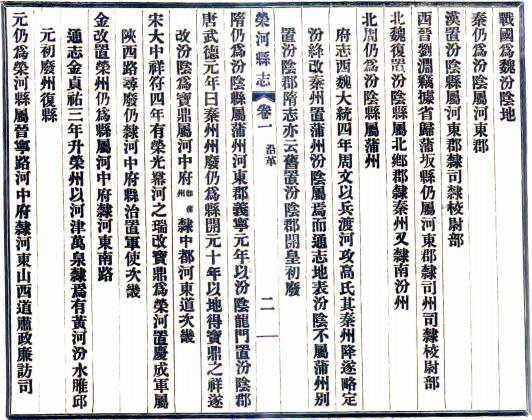 戰國爲魏汾陰地
秦仍爲汾陰屬河東郡
漢置汾陰縣屬河東郡隸司隸校尉部
西晉劉淵竊據省歸蒲坂縣仍屬河東郡隸司州司隸校尉部
北魏復置汾陰縣屬北鄉郡隸秦州又隸南汾州
北周仍爲汾陰縣屬蒲州
府志西魏大統四年周文以兵渡河攻高氏其秦州降遂略定
汾絳改秦州置蒲州汾陰屬焉而通志地表汾陰不屬蒲州別
置汾陰郡隋志亦云舊置汾陰郡開皇初廢
榮河縣志 卷一 沿革 二
隋仍爲汾陰縣屬蒲州河東郡義寧元年以汾陰龍門置汾陰郡
唐武德元年曰秦州州廢仍爲縣開元十年以地得寶鼎之祥遂
改汾陰爲寶鼎屬河中府卽蒲州隸中都河東道次畿
宋大中祥符四年有榮光羃河之瑞改寶鼎爲榮河置慶成軍屬
陝西路尋廢仍隸河中府縣治置軍使次畿
金改置榮州仍爲縣屬河中府隸河東南路
通志金貞祐三年升榮州以河津萬泉隸焉有黃河汾水脽邱
元初廢州復縣
元仍爲榮河縣屬晉寧路河中府隸河東山西道肅政廉訪司